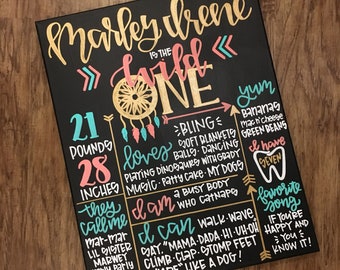 Marley Irene
IS THE
wild
ONE
21
POUNDS
28
INCHES
loves
BLING
SOFT BLANKETS
BALLS · DANCING
PLAYING DINOSAURS WITH GRADY
MUSIC · PATTY CAKE · MY DOGS
yum
BANANAS
MAC N' CHEESE
GREEN BEANS
I have
SEVEN
they
call me
MAR-MAR
LIL SISTER
MARWEY
I am
A BUSY BODY
WHO CATNAPS
I can
WALK · WAVE
SAY "MAMA · DADA · HI · UH-OH
CLIMB · CLAP · STOMP FEET
LIKE A DOG!
favorite
song
IF YOU'RE
HAPPY AND
YOU
KNOW IT!